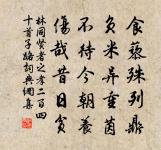 食藜殊列鼎
負米异重茵
不待今朝養
傷哉昔日貧
林同賢者之孝二百四
十首子路詞典網集